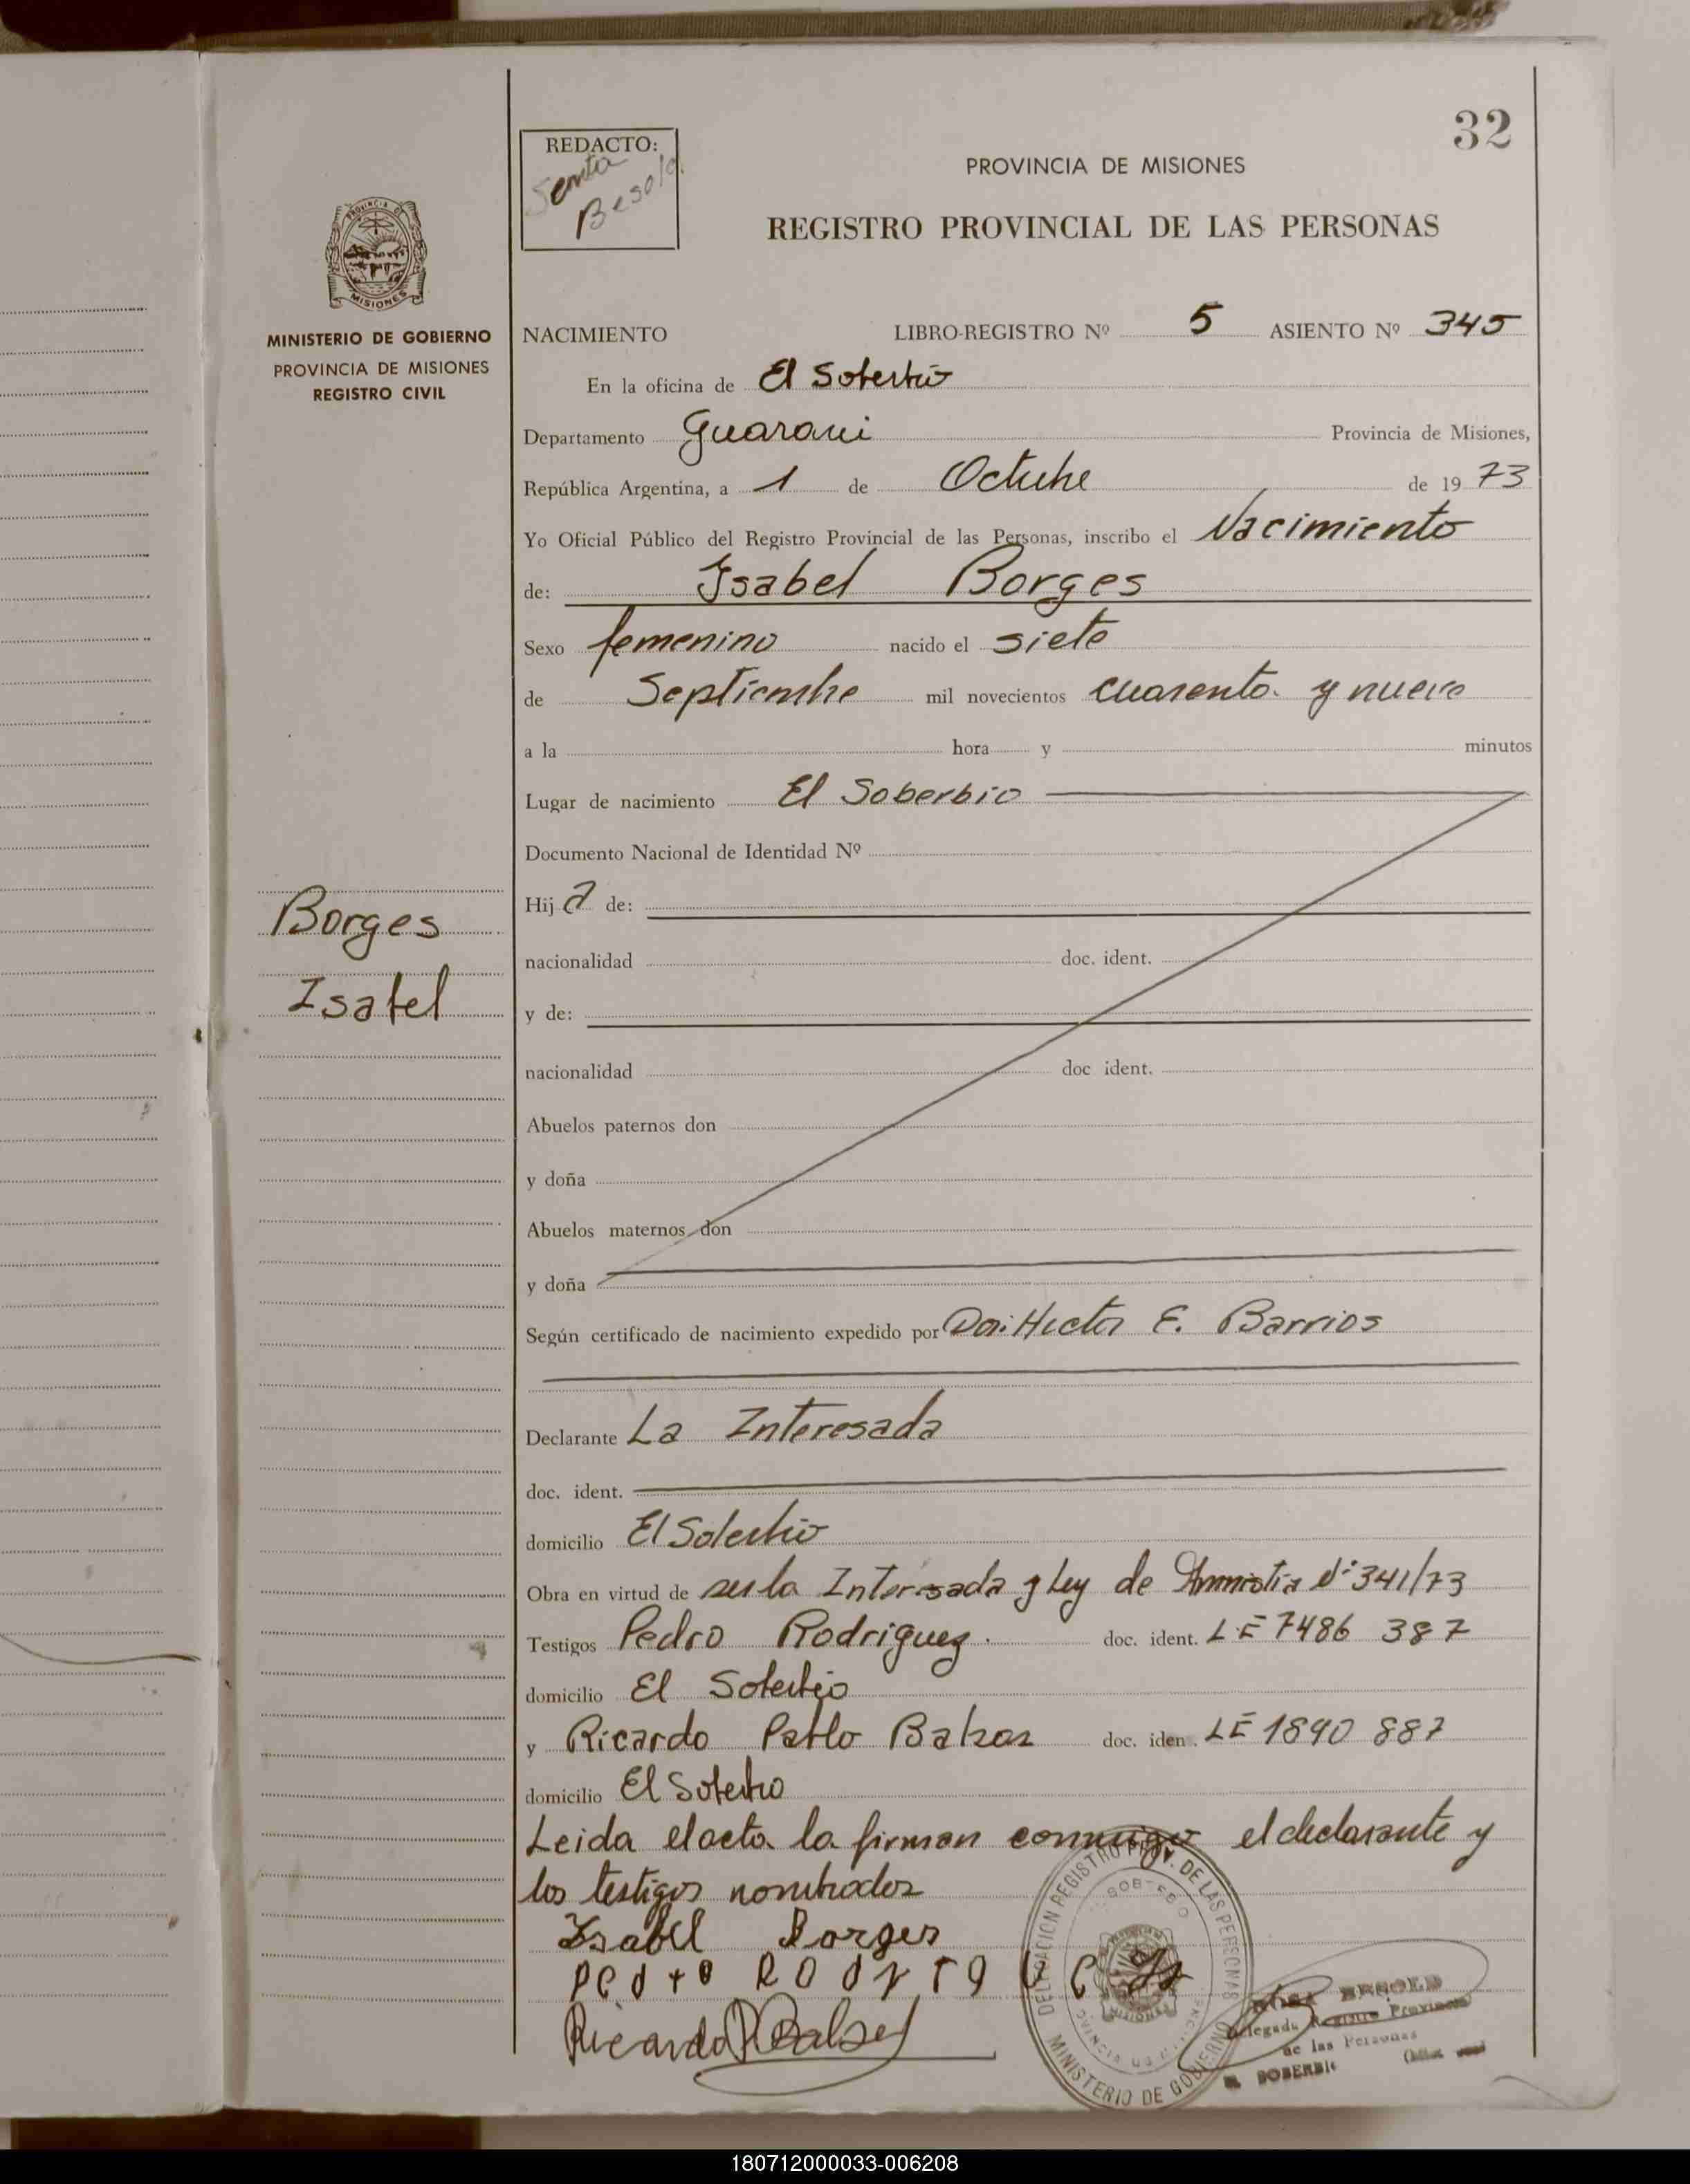 32
REDACTO:
PROVINCIA DE MISIONES
REGISTRO PROVINCIAL DE LAS PERSONAS
PROVINCIA DE
MISIONES
MINISTERIO DE GOBIERNO
PROVINCIA DE MISIONES
REGISTRO CIVIL
NACIMIENTO LIBRO-REGISTRO Nº 5 ASIENTO Nº 345
En la oficina de El Soberbio
Departamento Guarani Provincia de Misiones,
República Argentina, a 1 de Octubre de 1973
Yo Oficial Público del Registro Provincial de las Personas, inscribo el Nacimiento
de: Isabel Borges
Sexo femenino nacido el siete
de Septiembre mil novecientos cuarenta y nueve
a la hora y minutos
Lugar de nacimiento El Soberbio
Documento Nacional de Identidad Nº
Hija de:
nacionalidad doc. ident.
y de:
nacionalidad doc ident.
Abuelos paternos don
y doña
Abuelos maternos don
y doña
Según certificado de nacimiento expedido por Hector E. Barrios
Declarante La Interesada
doc. ident.
domicilio El Soberbio
Obra en virtud de ser la Interesada y Ley de Amnistia Nº 341/73
Testigos Pedro Rodriguez. doc. ident. LE 7486 387
domicilio El Soberbio
y Ricardo Pablo doc. iden. LE 1890 887
domicilio El Soberbio
Leida el acta la firman conmigo el declarante y
los testigos nombrados
Isabel Borges
Ricardo P
Borges
Isabel
DELEGACION REGISTRO PROV. DE LAS PERSONAS
MINISTERIO DE GOBIERNO
MISIONES
BESOLD
Delegada Registro Provincial
de las Personas
EL SOBERBIO
180712000033-006208